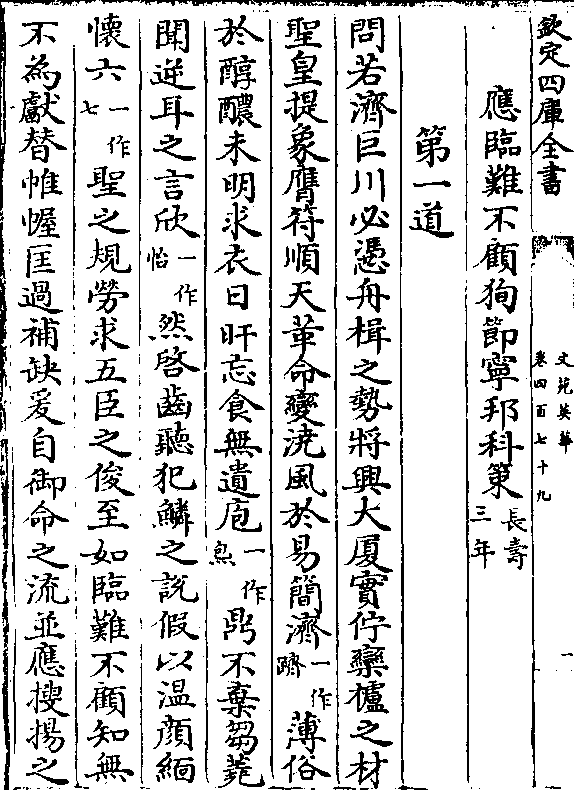 欽定四庫全書
文苑英華
卷四百七十九
一
應臨難不顧狥節寧邦科策長壽三年
第一道
問若濟巨川必憑舟楫之勢將興大厦實佇欒櫨之材
聖皇提象膺符順天革命變澆風於易簡濟一作躋薄俗
於醇醲未明求衣日旰忘食無遺庖一作烹鼎不棄芻蕘
聞逆耳之言欣一作怡然啓齒聽犯鱗之説假以温顔緬
懷六一作七聖之規勞求五臣之俊至如臨難不顧知無
不為獻替帷幄匡過補缺爰自御命之流並應搜揚之